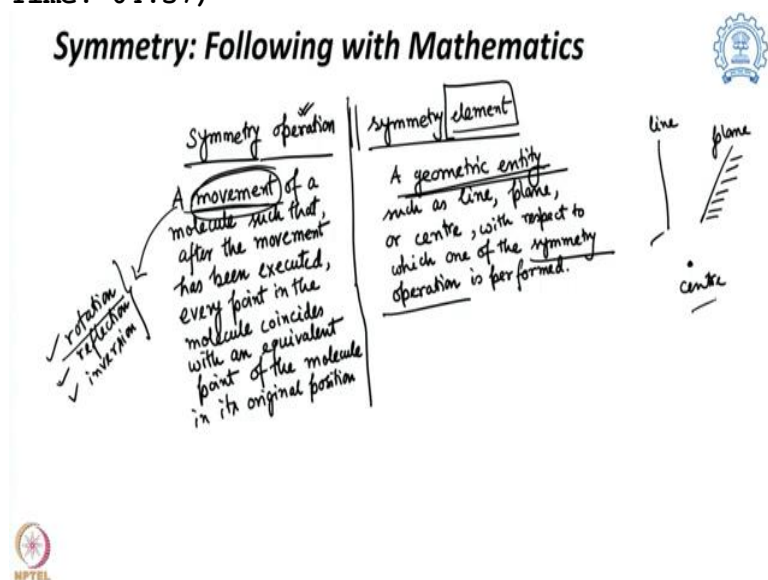 Time: 04:57)
Symmetry: Following with Mathematics
Symmetry operation
A movement of a
molecule such that,
after the movement
has been executed,
every point in the
molecule coincides
with an equivalent
point of the molecule
in its original position
rotation
reflection
inversion
symmetry element
A geometric entity
such as line, plane,
or centre, with respect to
which one of the symmetry
operation is performed.
line
plane
centre
NPTEL